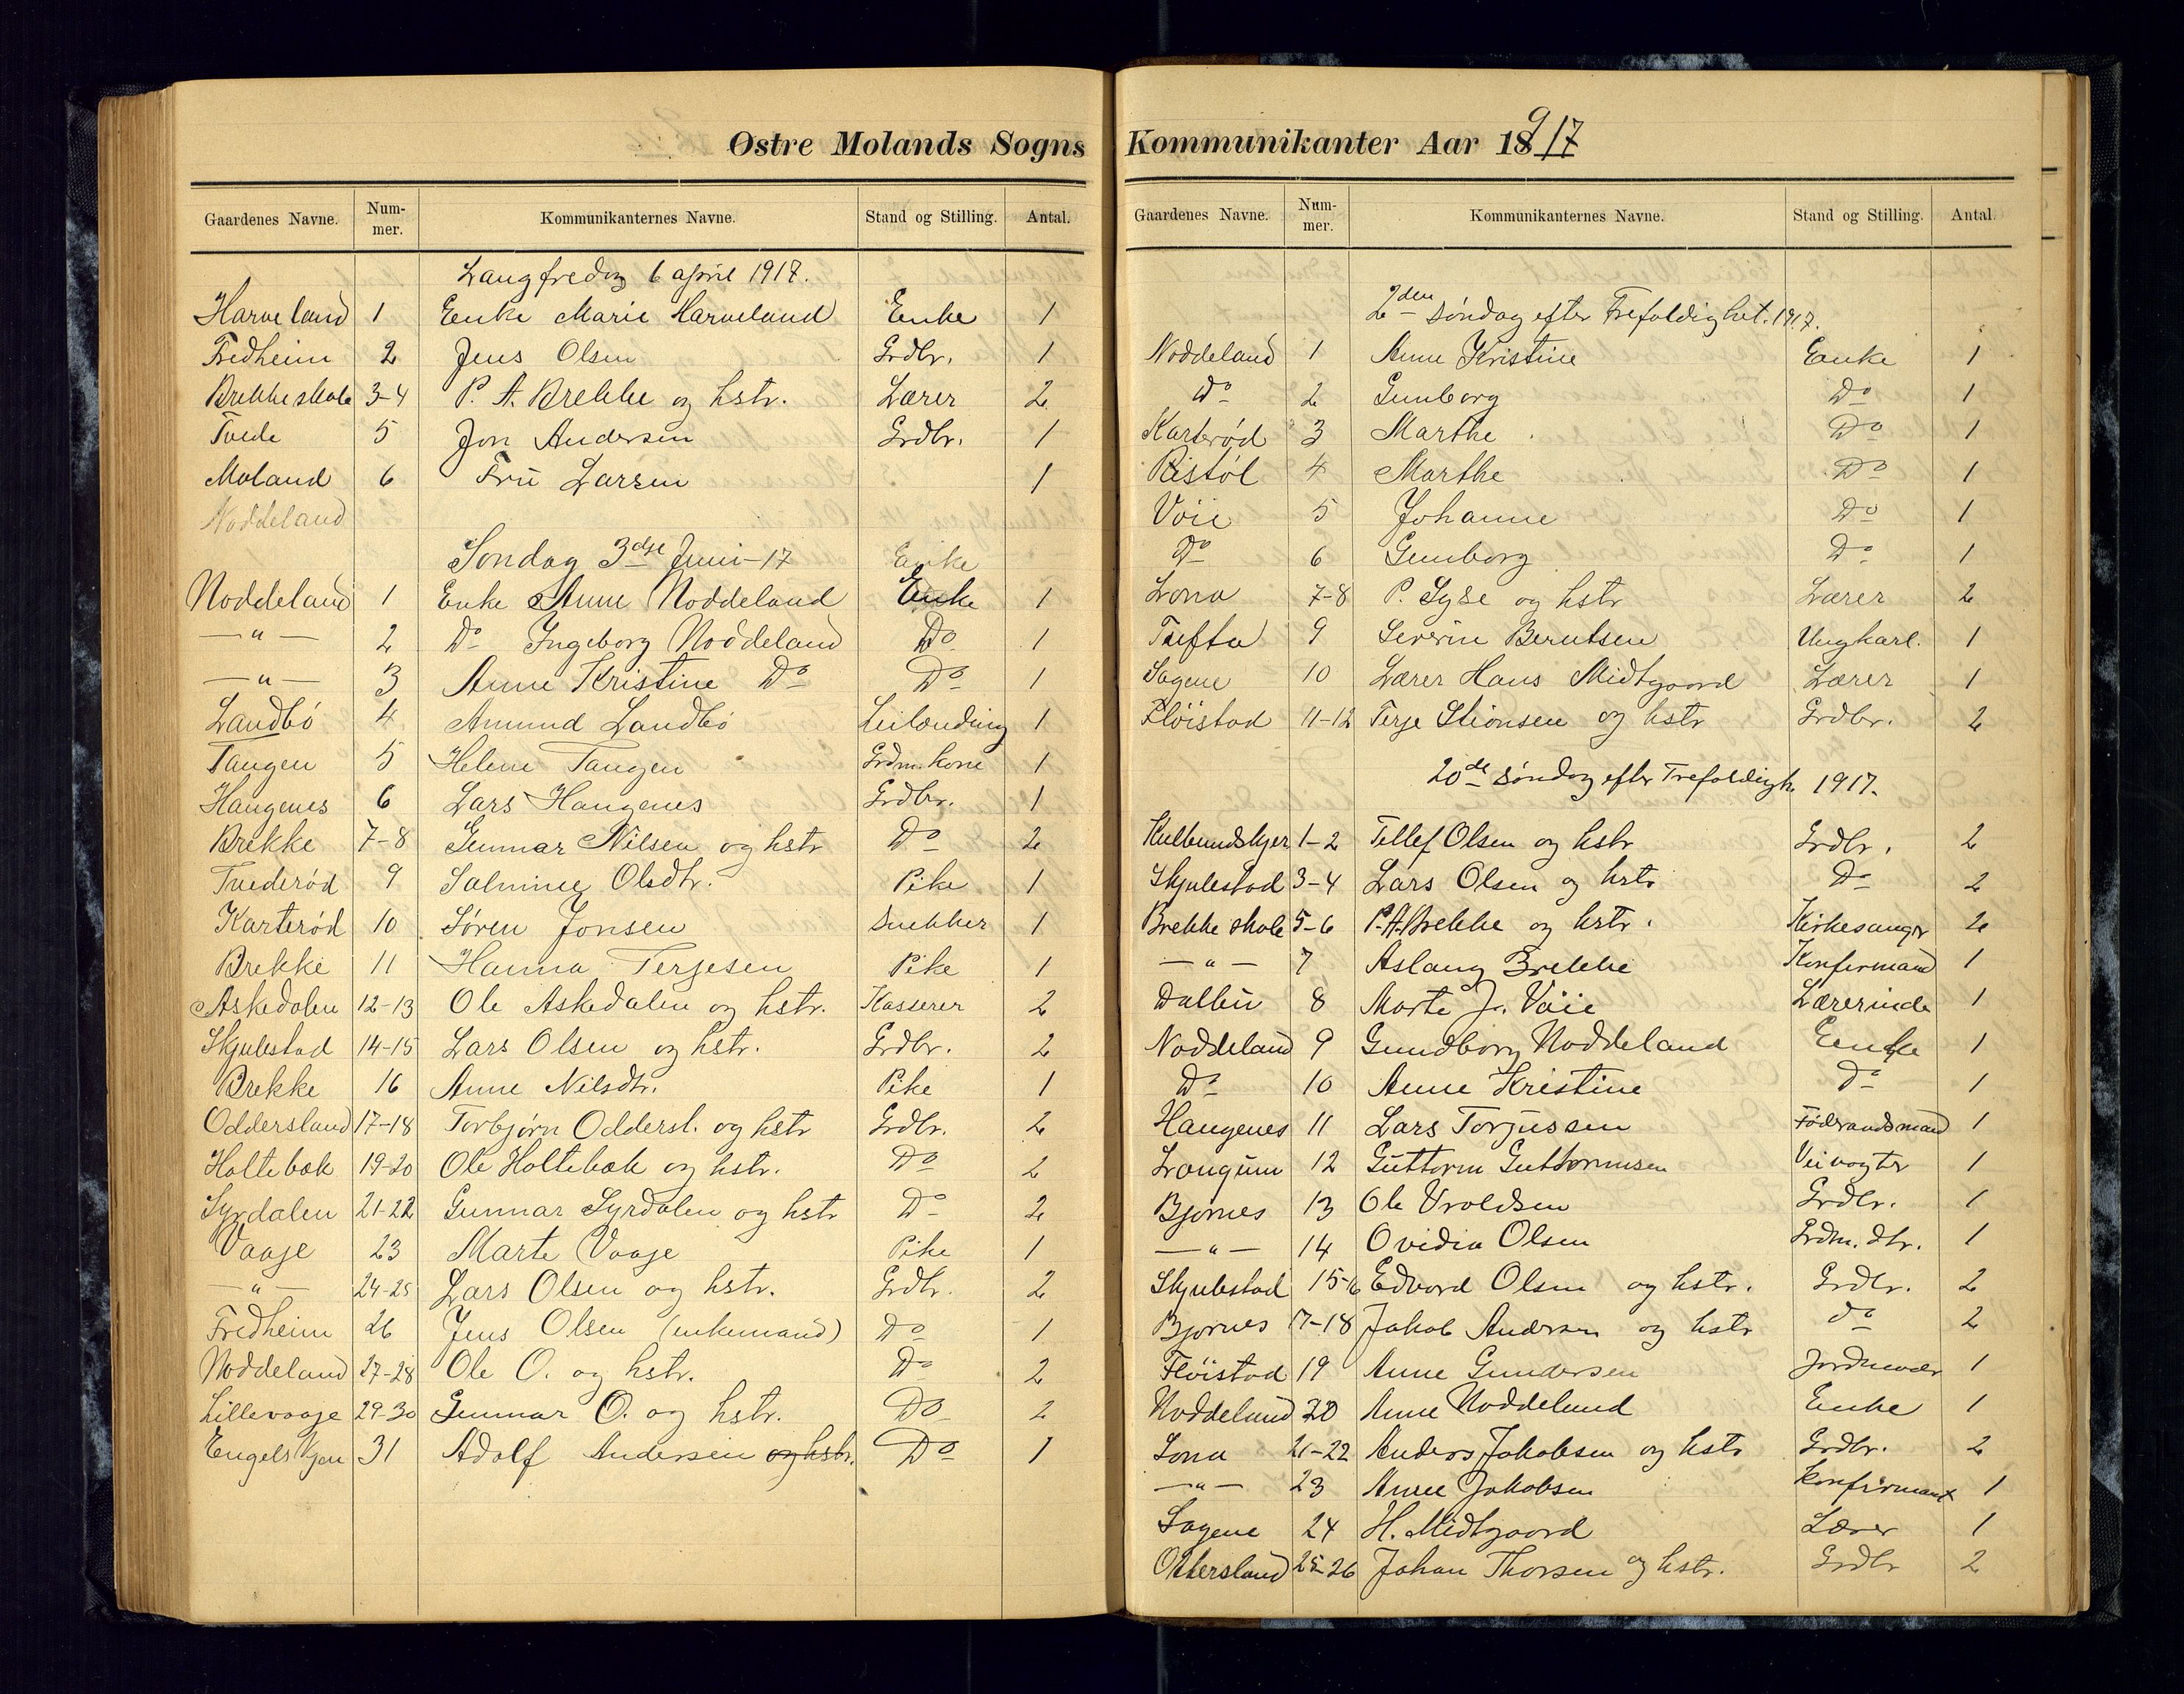 Østre Molands Sogns
Gaardenes Navne. Num-mer. Kommunikanternes Navne. Stand og Stilling. Antal.
Langfredag 6 april 1917.
Harveland 1 Enke Marie Harveland Enke 1
Fredheim 2 Jens Olsen Grdbr. 1
Brekkeskole 3-4 P. A. Brekke og hstr. Lærer 2
Tvede 5 Jon Andersen Grdbr. 1
Moland 6 Fru Larsen 1
Noddeland
Søndag 3dje Juni-17 Enke
Noddeland 1 Enke Anne Noddeland Enke 1
—"— 2 Do Ingeborg Noddeland Do 1
—"— 3 Anne Kristine Do Do 1
Landbö 4 Amund Landbö Leilænding 1
Tangen 5 Helene Tangen Grdm. kone 1
Haugenes 6 Lars Haugenes Grdbr. 1
Brekke 7-8 Gunnar Nilsen og hstr Do 2
Tvederød 9 Salmine Olsdtr. Pike 1
Karterød 10 Søren Jonsen Snekker 1
Brekke 11 Hanna Terjesen Pike 1
Askedalen 12-13 Ole Askedalen og hstr. Kasserer 2
Skjulestad 14-15 Lars Olsen og hstr. Grdbr. 2
Brekke 16 Anne Nilsdtr. Pike 1
Oddersland 17-18 Torbjørn Oddersl. og hstr Grdbr. 2
Holtebæk 19-20 Ole Holtebæk og hstr. Do 2
Syrdalen 21-22 Gunnar Syrdalen og hstr Do 2
Vaaje 23 Marte Vaaje Pike 1
—"— 24-25 Lars Olsen og hstr. Grdbr. 2
Fredheim 26 Jens Olsen (enkemand) Do 1
Noddeland 27-28 Ole O. og hstr. Do 2
Lillevaaje 29-30 Gunnar O. og hstr. Do 2
Engelskjøn 31 Adolf Andersen og hstr. Do 1
Kommunikanter Aar 18917
Gaardenes Navne. Num-mer. Kommunikanternes Navne. Stand og Stilling. Antal.
2den Søndag efter Trefoldighet. 1917.
Noddeland 1 Anne Kristine Enke 1
Do 2 Gunborg Do 1
Karterød 3 Marthe Do 1
Ristöl 4 Marthe Do 1
Vöie 5 Johanne Do 1
Do 6 Gunborg Do 1
Lona 7-8 P. Syse og hstr Lærer 2
Tufta 9 Severin Berntsen Ungkarl. 1
Sagene 10 Lærer Hans Midtgaard Lærer 1
Flöistad 11-12 Terje Stionsen og hstr Grdbr. 2
20de Søndag efter Trefoldigh. 1917.
1-2 Tellef Olsen og hstr Grdbr. 2
Skjulestad 3-4 Lars Olsen og hstr Do 2
Brekke skole 5-6 P.A. Brekke og hstr. Kirkesanger 2
—"— 7 Aslaug Brekke Konfirmand 1
Dallen 8 Marte J. Vöie Lærerinde 1
Noddeland 9 Gundborg Noddeland Enke 1
Do 10 Anne Kristine do 1
Haugenes 11 Lars Torjussen Föderaadsmand 1
Longum 12 Guttorm Guttormsen Veivogter 1
Bjornes 13 Ole Vroldsen Grdbr. 1
—"— 14 Ovidia Olsen Grdm. dtr. 1
Skjulestad 15-6 Edvard Olsen og hstr. Grdbr. 2
Bjornes 17-18 Jakob Andersen og hstr do 2
Flöistad 19 Anne Gundersen Jordmoder 1
Noddeland 20 Anne Noddelund Enke 1
Lona 21-22 Anders Jakobsen og hstr Grdbr. 2
—"— 23 Anne Jakobsen Konfirmant 1
Sagene 24 H. Midtgaard Lærer 1
Ottersland 25-26 Johan Thorsen og hstr. Grdbr 2